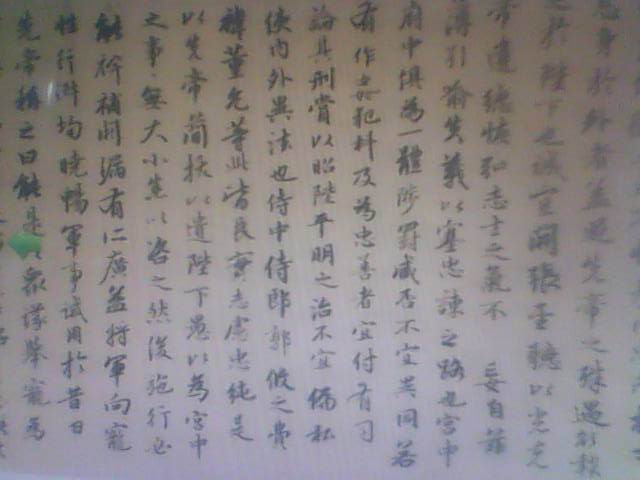 忘身於外者蓋追先帝之殊遇欲報
之於陛下也誠宜開張聖聽以光
帝遺德恢弘志士之氣不 妄自菲
薄引喻失義以塞忠諫之路也宮中
府中俱為一體陟罰臧否不宜異同若
有作姦犯科及為忠善者宜付有司
論其刑賞以昭陛平明之治不宜偏私
使內外異法也侍中侍郎郭攸之費
禕董允等此皆良實志慮忠純是
以先帝簡拔以遺陛下愚以為宮中
之事無大小悉以咨之然後施行必
能裨補闕漏有仁廣益將軍向寵
性行淑均曉暢軍事試用於昔日
先帝稱之曰能是以眾議舉寵為